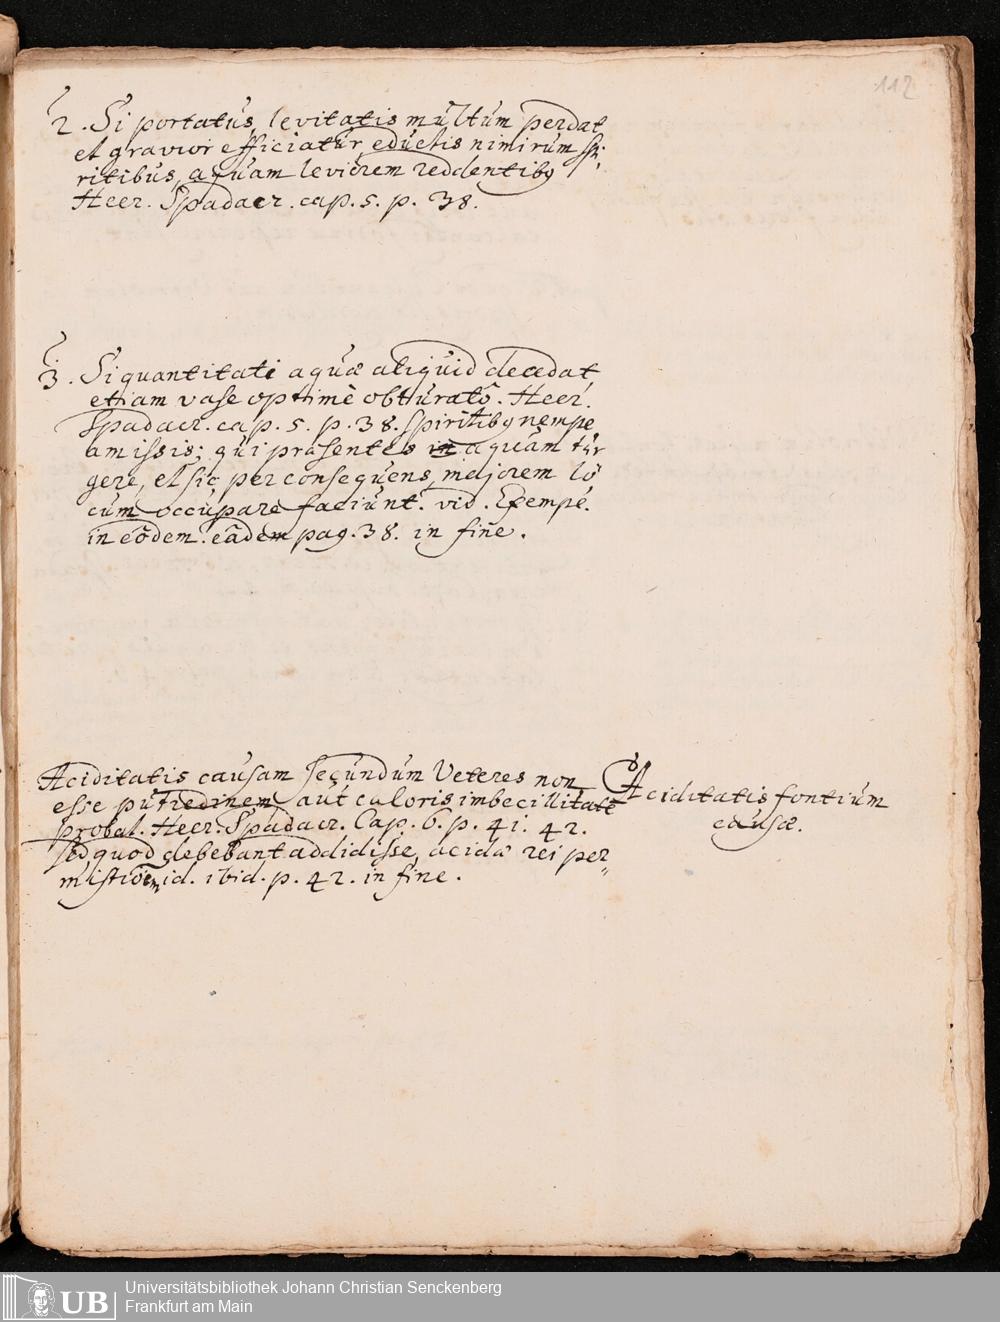 112
2. Si portatus, levitatis multum perdat
et gravior efficiatur, eductis nimirum spi-
ritibus, aquam leviorem reddentibq
Heer. Spadacr. cap. 5. p. 38.
3. Si quantitati aquæ aliquid decedat
etiam vase optimè obturatô. Heer.
Spadacr. cap. 5. p. 38. spiritibq nempe
amissis; qui præsentes in aquam tur
gere, et sic per consequens, majorem lo
cum occupare faciunt. vid. Exempl.
in eôdem. eâdem pag. 38. in fine.
Aciditatis causam secundum Veteres non
esse putredinem aut caloris imbecillitatē
probat. Heer. Spadacr. Cap. 6. p. 41. 42.
sed quod debebant addidisse, acidæ rei per
mistionem id. ibid. p. 42. in fine.
Aciditatis fontium
causæ.
UB
Universitätsbibliothek Johann Christian Senckenberg
Frankfurt am Main